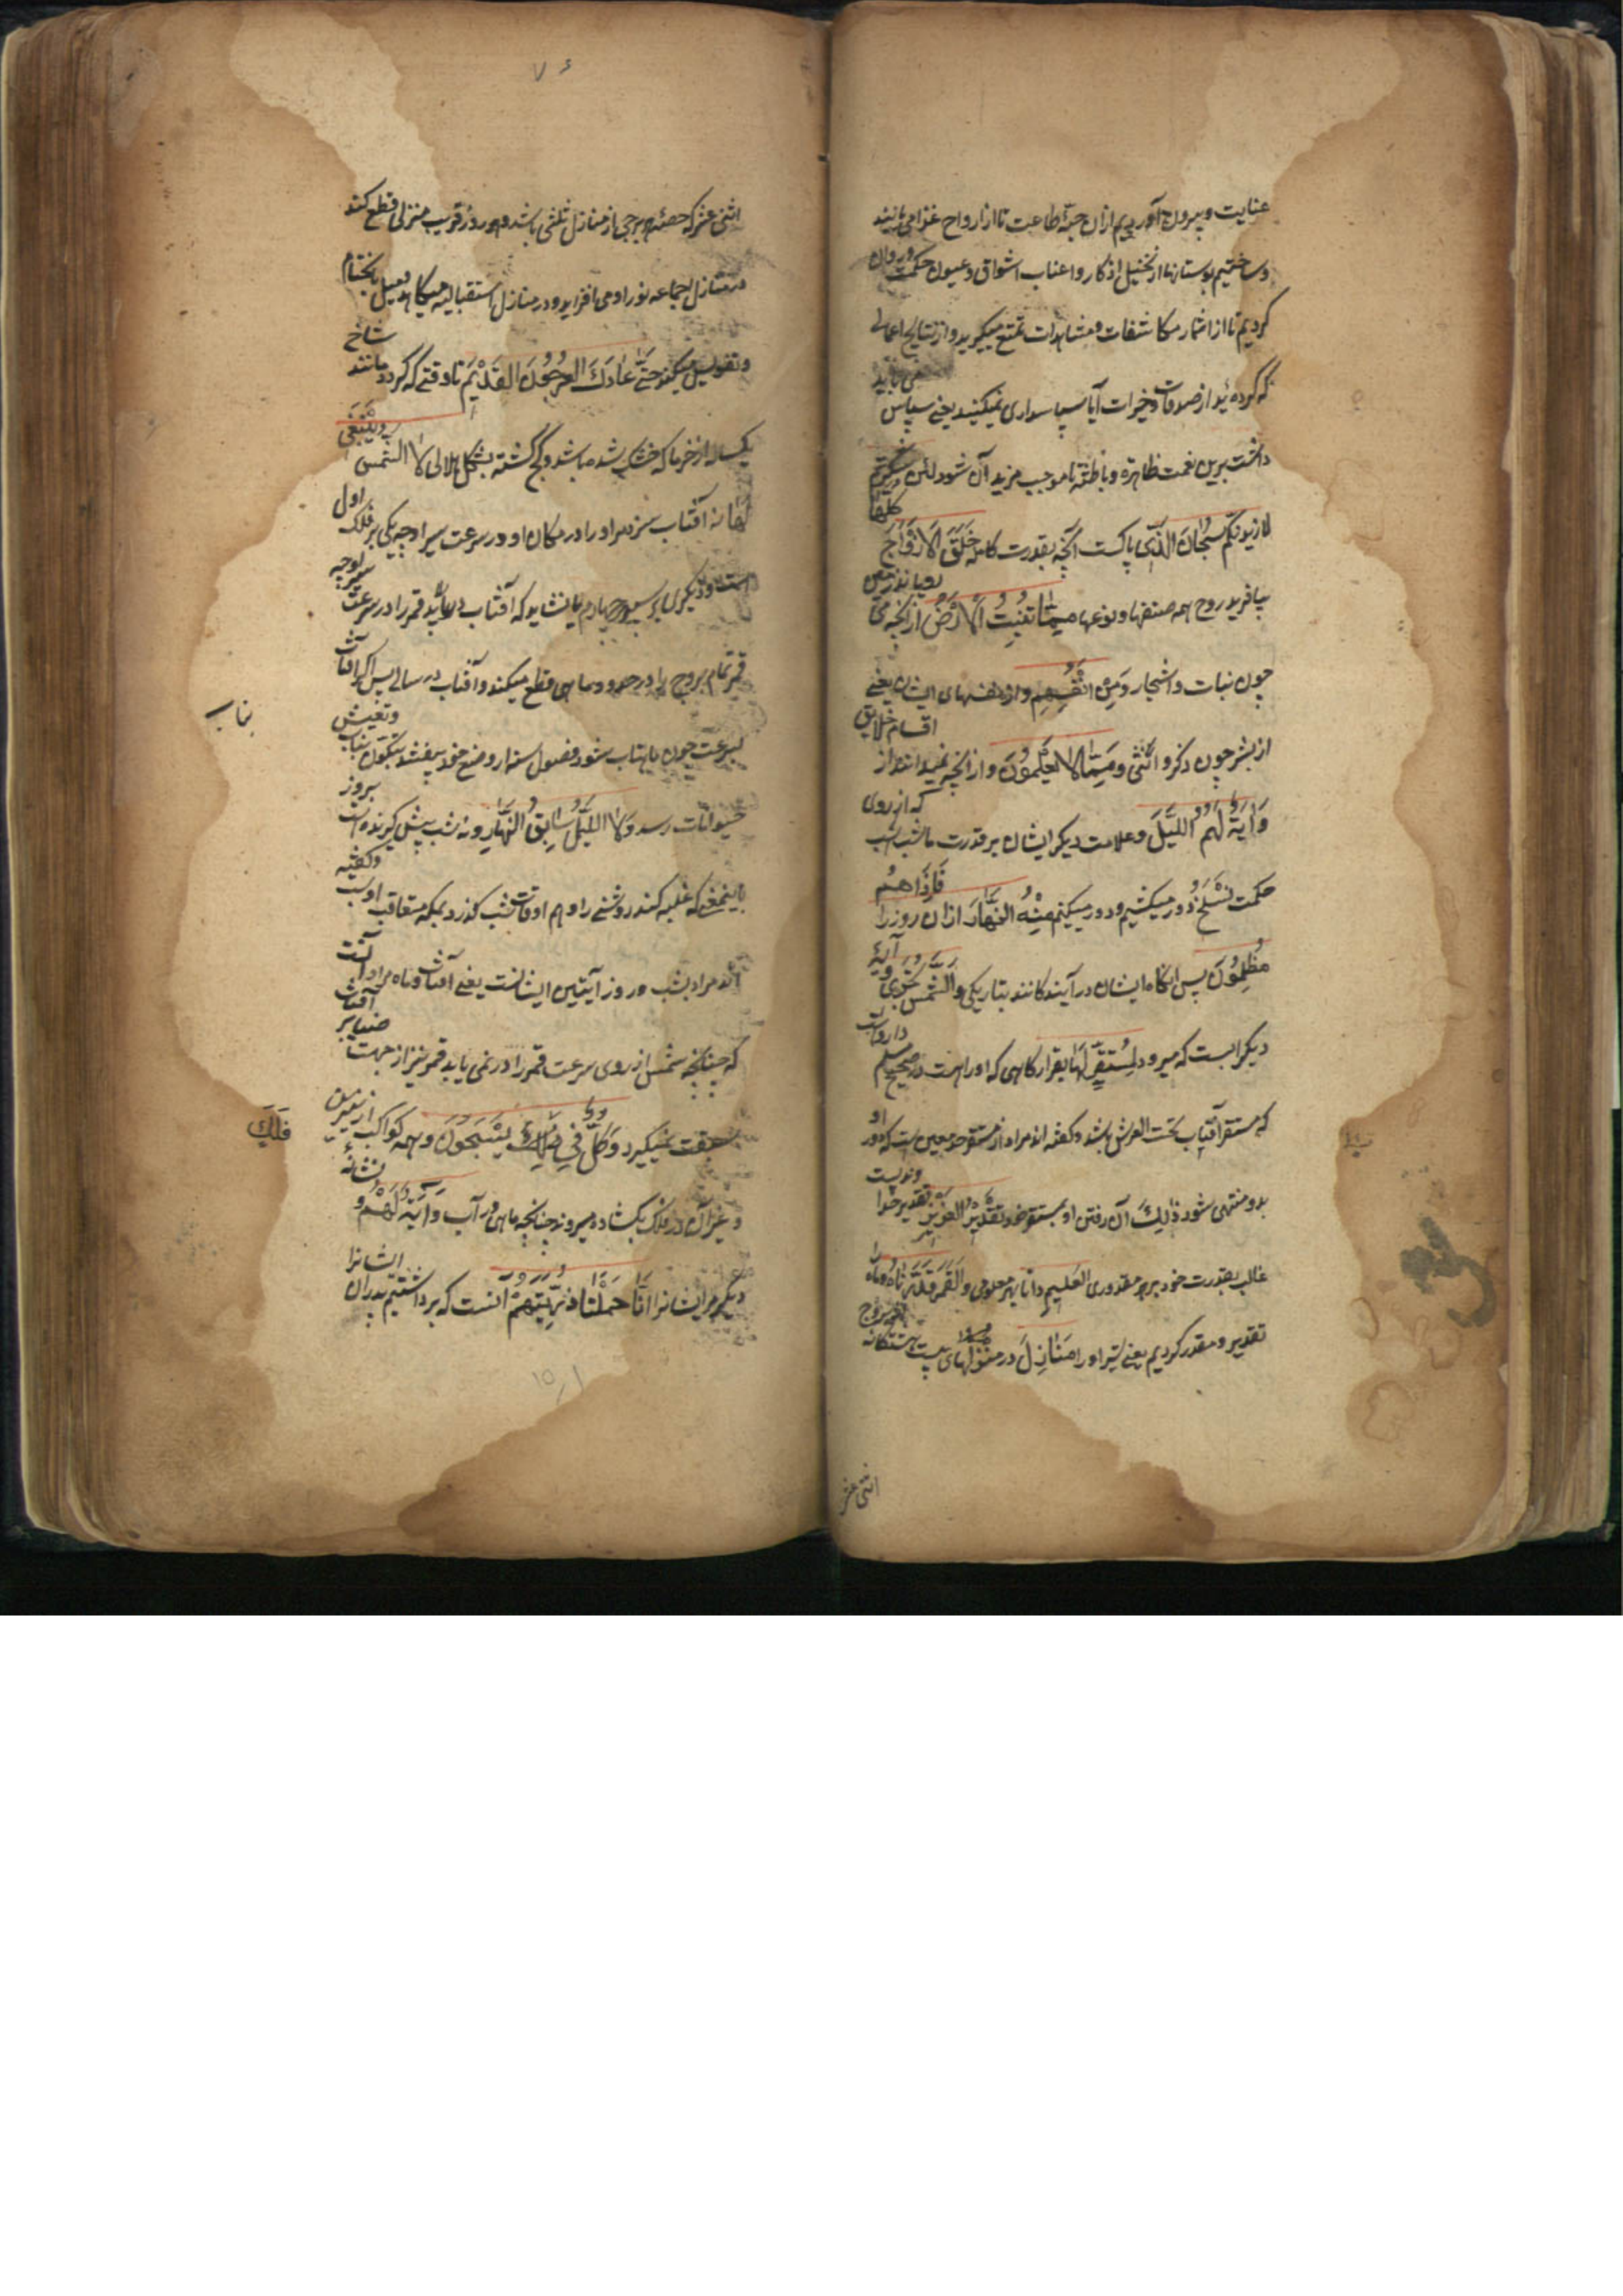 عنایت و بیرون آوردیم ازان حبّه طاعت تا از ارواح غذا می یابند
و ساختیم بوستانها از نخیل اذکار و اعناب اشواق و عیون حکمت دروان
کردیم تا از اثمار مکاشفات و مشاهدات تمتع میگیرید و از نتایج اعمالی
که کرده ئید از صدقات و خیرات آیا سپاسداری نمیکنید یعنی سپاس می باید
داشت برین نعمت ظاهره و باطنه تا موجب مزید آن شود لئن شکرتم
لازیدنکم سُبْحَانَ الَّذِی پاکست آنکه بقدرت کامله خَلَقَ الْاَزْوَاجَ کُلَّهَا
بیافرید روح همه صنفها و نوعها مِمَّا تُنْبِتُ الْاَرْضُ از آنچه می رویاند زمین
چون نبات و اشجار وَمِنْ اَنْفُسِهِمْ و از نفسهای ایشان یعنی
از بشر چون ذکر و انثی وَمِمَّا لَا یَعْلَمُونَ و از آنچه نمیدانند از اقسام خلایق
وَاٰیَةٌ لَهُمُ اللَّیْلُ و علامت دیگر ایشان بر قدرت ما شب است که از روی
حکمت نَسْلَخُ دور میکشیم و دور میکنیم مِنْهُ النَّهَارَ ازان روز را فَاِذَا هُمْ
مُظْلِمُونَ پس آنگاه ایشان درآیندگانند بتاریکی وَالشَّمْسُ تَجْرِی و آیة
دیگر است که میرود لِمُسْتَقَرٍّ لَهَا بقرارگاهی که او راست در صحیح مسلم
که مستقر آفتاب تحت العرش باشد و گفته اند مراد از مستقر حد معین است که دور او
بدو منتهی شود ذٰلِکَ آن رفتن او بمستقر خود تَقْدِیرُ الْعَزِیزِ تقدیر خدا
غالب بقدرت خود بر هر مقدوری الْعَلِیمِ دانا بهر معلومی وَالْقَمَرَ قَدَّرْنَاهُ و ماه را
تقدیر و مقدر کردیم یعنی سیر او را مَنَازِلَ در منزلهای بیست هشتگانه
اثنی عشر
اثنی عشر که حصّه هر برجی از منازل ثلثی باشد و هر روز قریب منزلی قطع کند
در منازل اجتماعیه نور او می افزاید و در منازل استقبالیه میکاهد
و تقویس میکند حَتّٰی عَادَ کَالْعُرْجُونِ الْقَدِیمِ تا وقتی که گردد مانند شاخ
یکساله از خرما که خشک شده باشد و کج گشته بشکل هلالی لَا الشَّمْسُ یَنْبَغِی
لَهَا نه آفتاب سزد مر او را در مکان او و در سرعت سیر او چه یکی بر فلک اول
است و دیگری بر سپهر چهارم یا نشاید که آفتاب دریابد قمر را در سرعت سیر او چه
قمر تمام بروج را در حدود ماهی قطع میکند و آفتاب در سالی پس اگر آفتاب
بسرعت چون ماهتاب شود فصول سنه از وضع خود بیفتند
حیوانات رسد وَلَا اللَّیْلُ سَابِقُ النَّهَارِ و نه شب پیش گیرنده است بروز
باینمعنی که غلبه کند روشنی را و هم اوقات شب گذرد بلکه متعاقب اوست و گفته
اند مراد بشب و روز آیتین ایشانست یعنی آفتاب و ماه مراد آنست
که چنانچه شمس از روی سرعت قمر را در نمی یابد قمر نیز از جهت ضیا بر آفتاب
سبقت نمیگیرد وَکُلٌّ فِی فَلَکٍ یَسْبَحُونَ و همه کواکب
و غیر آن در فلک بگشاده میرود چنانچه ماهی در آب وَاٰیَةٌ لَهُمْ و نشانهٔ
دیگر مر ایشانرا اَنَّا حَمَلْنَا ذُرِّیَّتَهُمْ آنست که برداشتیم پدران ایشانرا
فلک